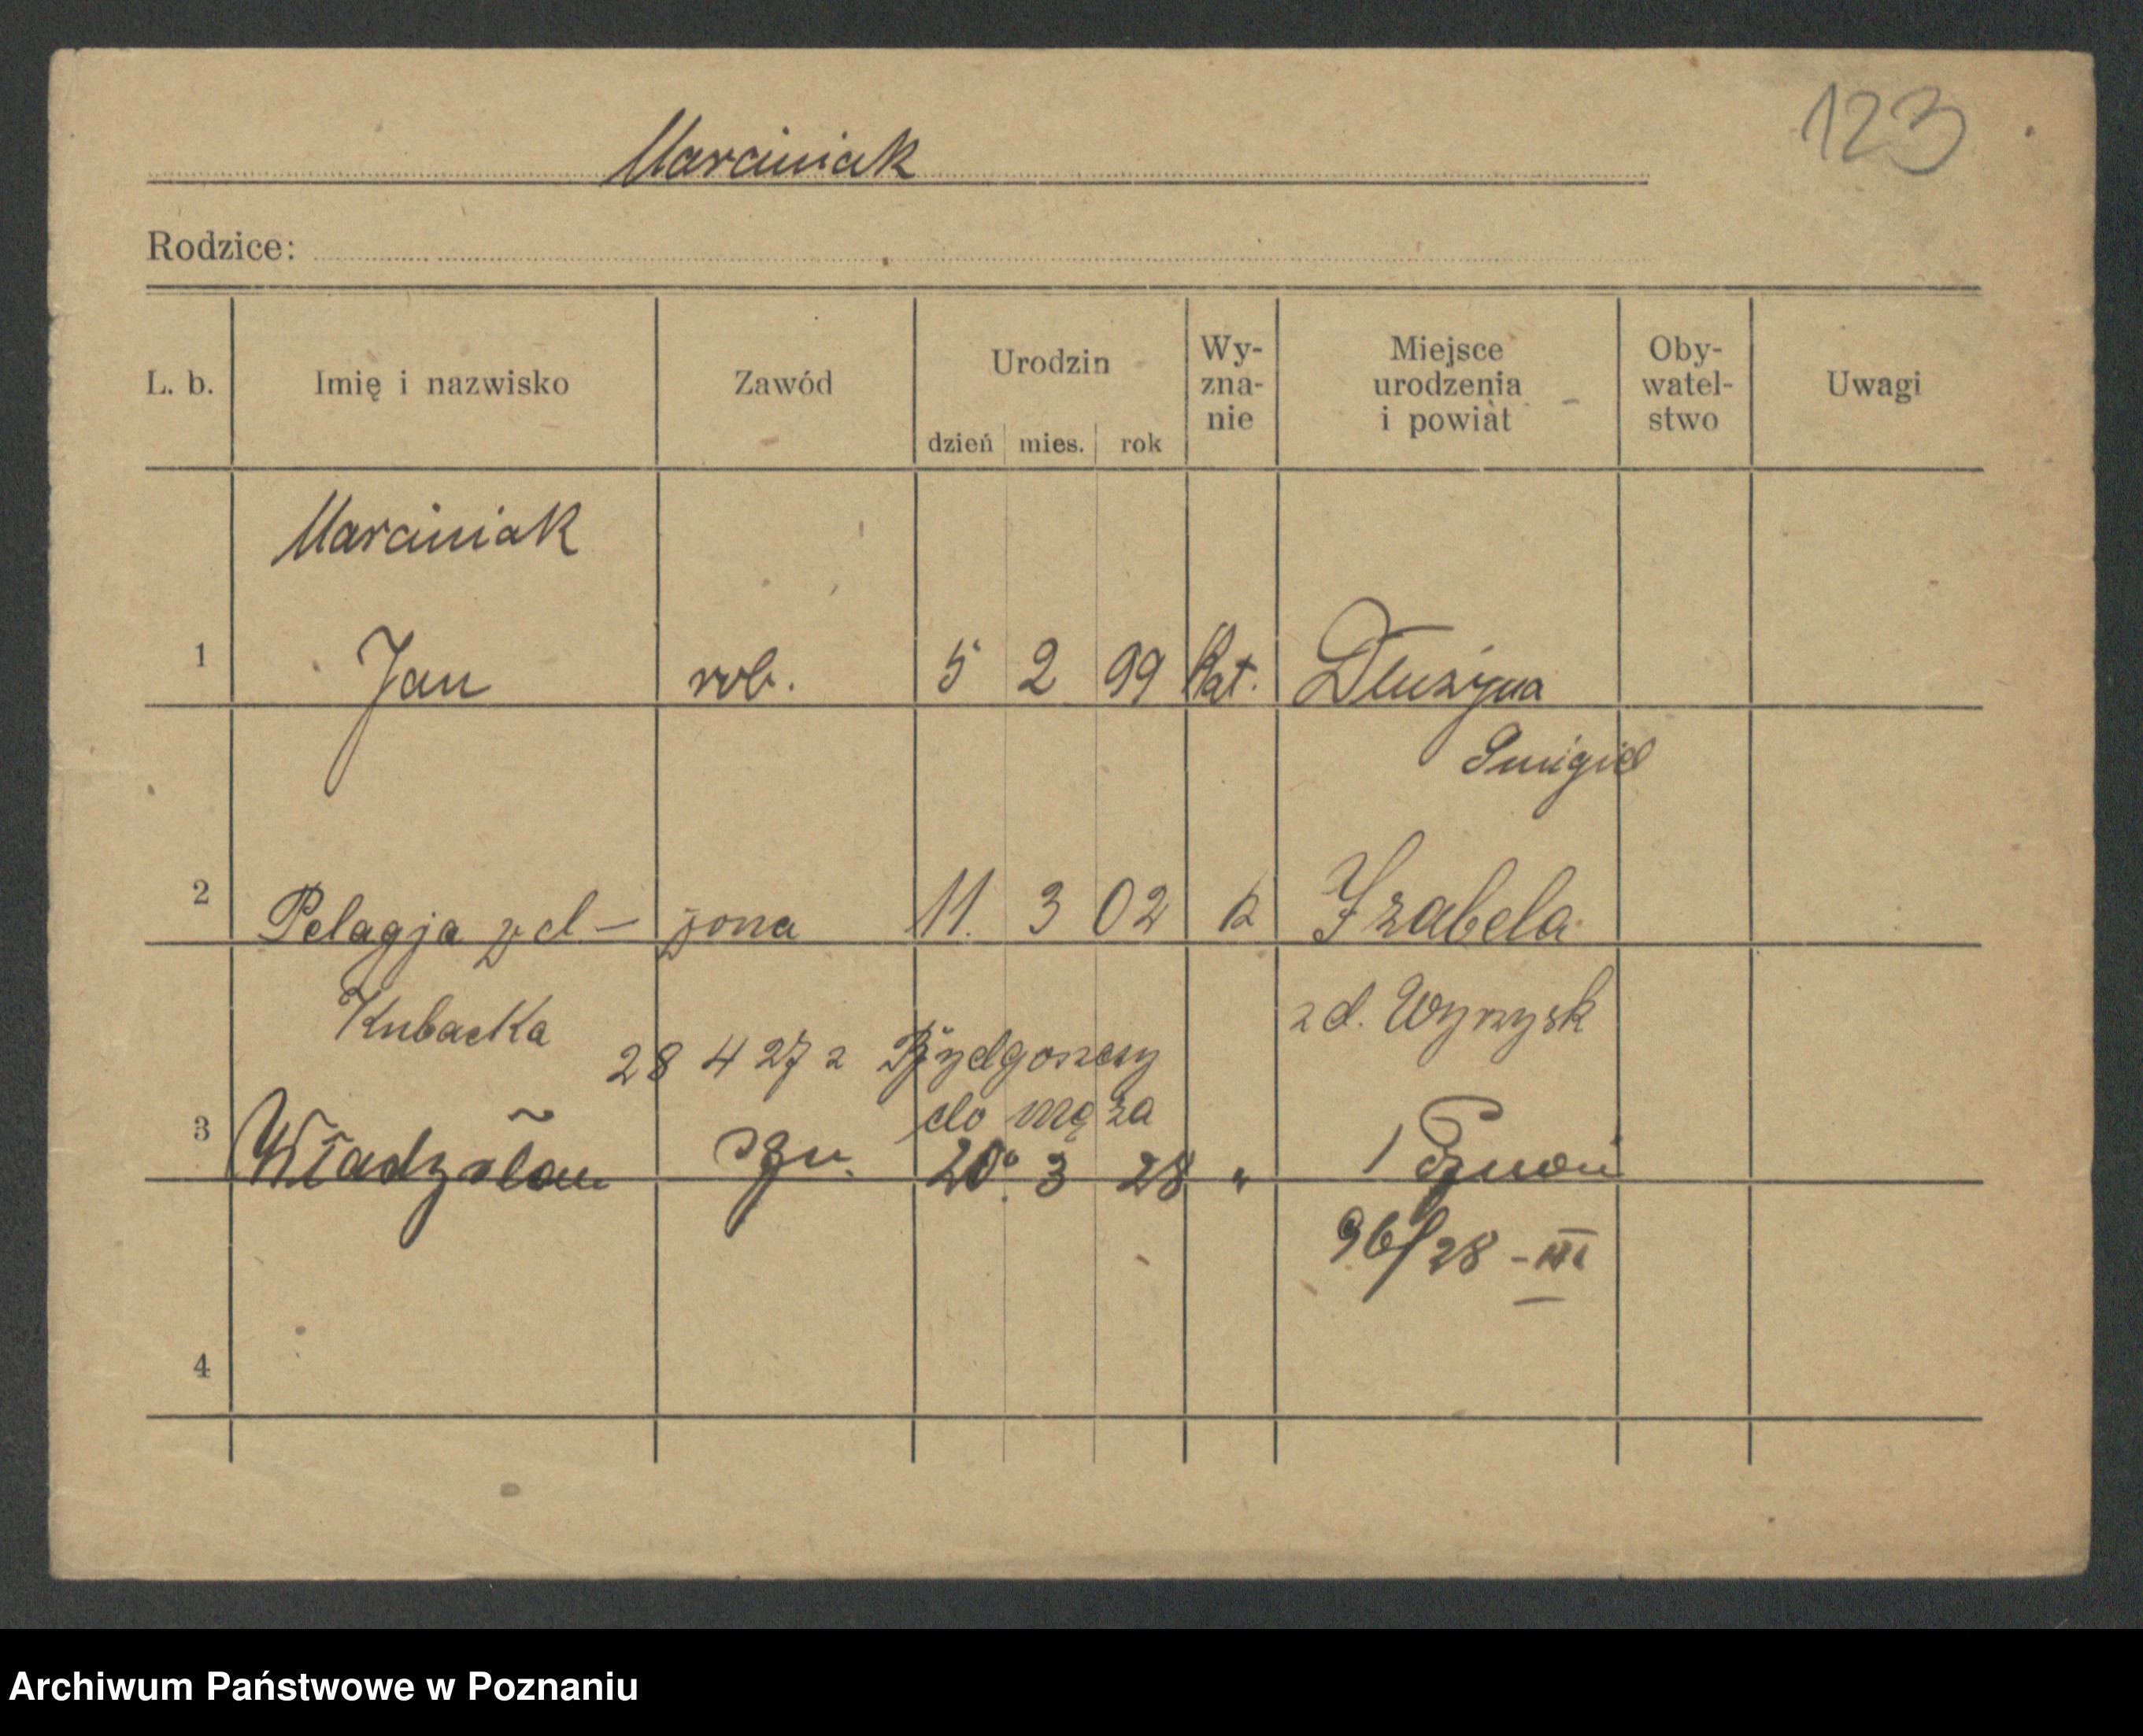 123
Marciniak
Rodzice:
L. b. Imię i nazwisko Zawód Urodzin dzień mies. rok Wy- zna- nie Miejsce urodzenia i powiat Oby- watel- stwo Uwagi
Marciniak
1 Jan rob. 5 2 99 Kat. Dłużyna
Śmigiel
2 Pelagja zd- żona 11. 3 02 k Izabela
Kubacka zd. Wyrzysk
28 4 27 z Bydgoszczy
do męża
3 Władysław syn. 20. 3 28 " 1 Poznań
96/28 - III
4
Archiwum Państwowe w Poznaniu